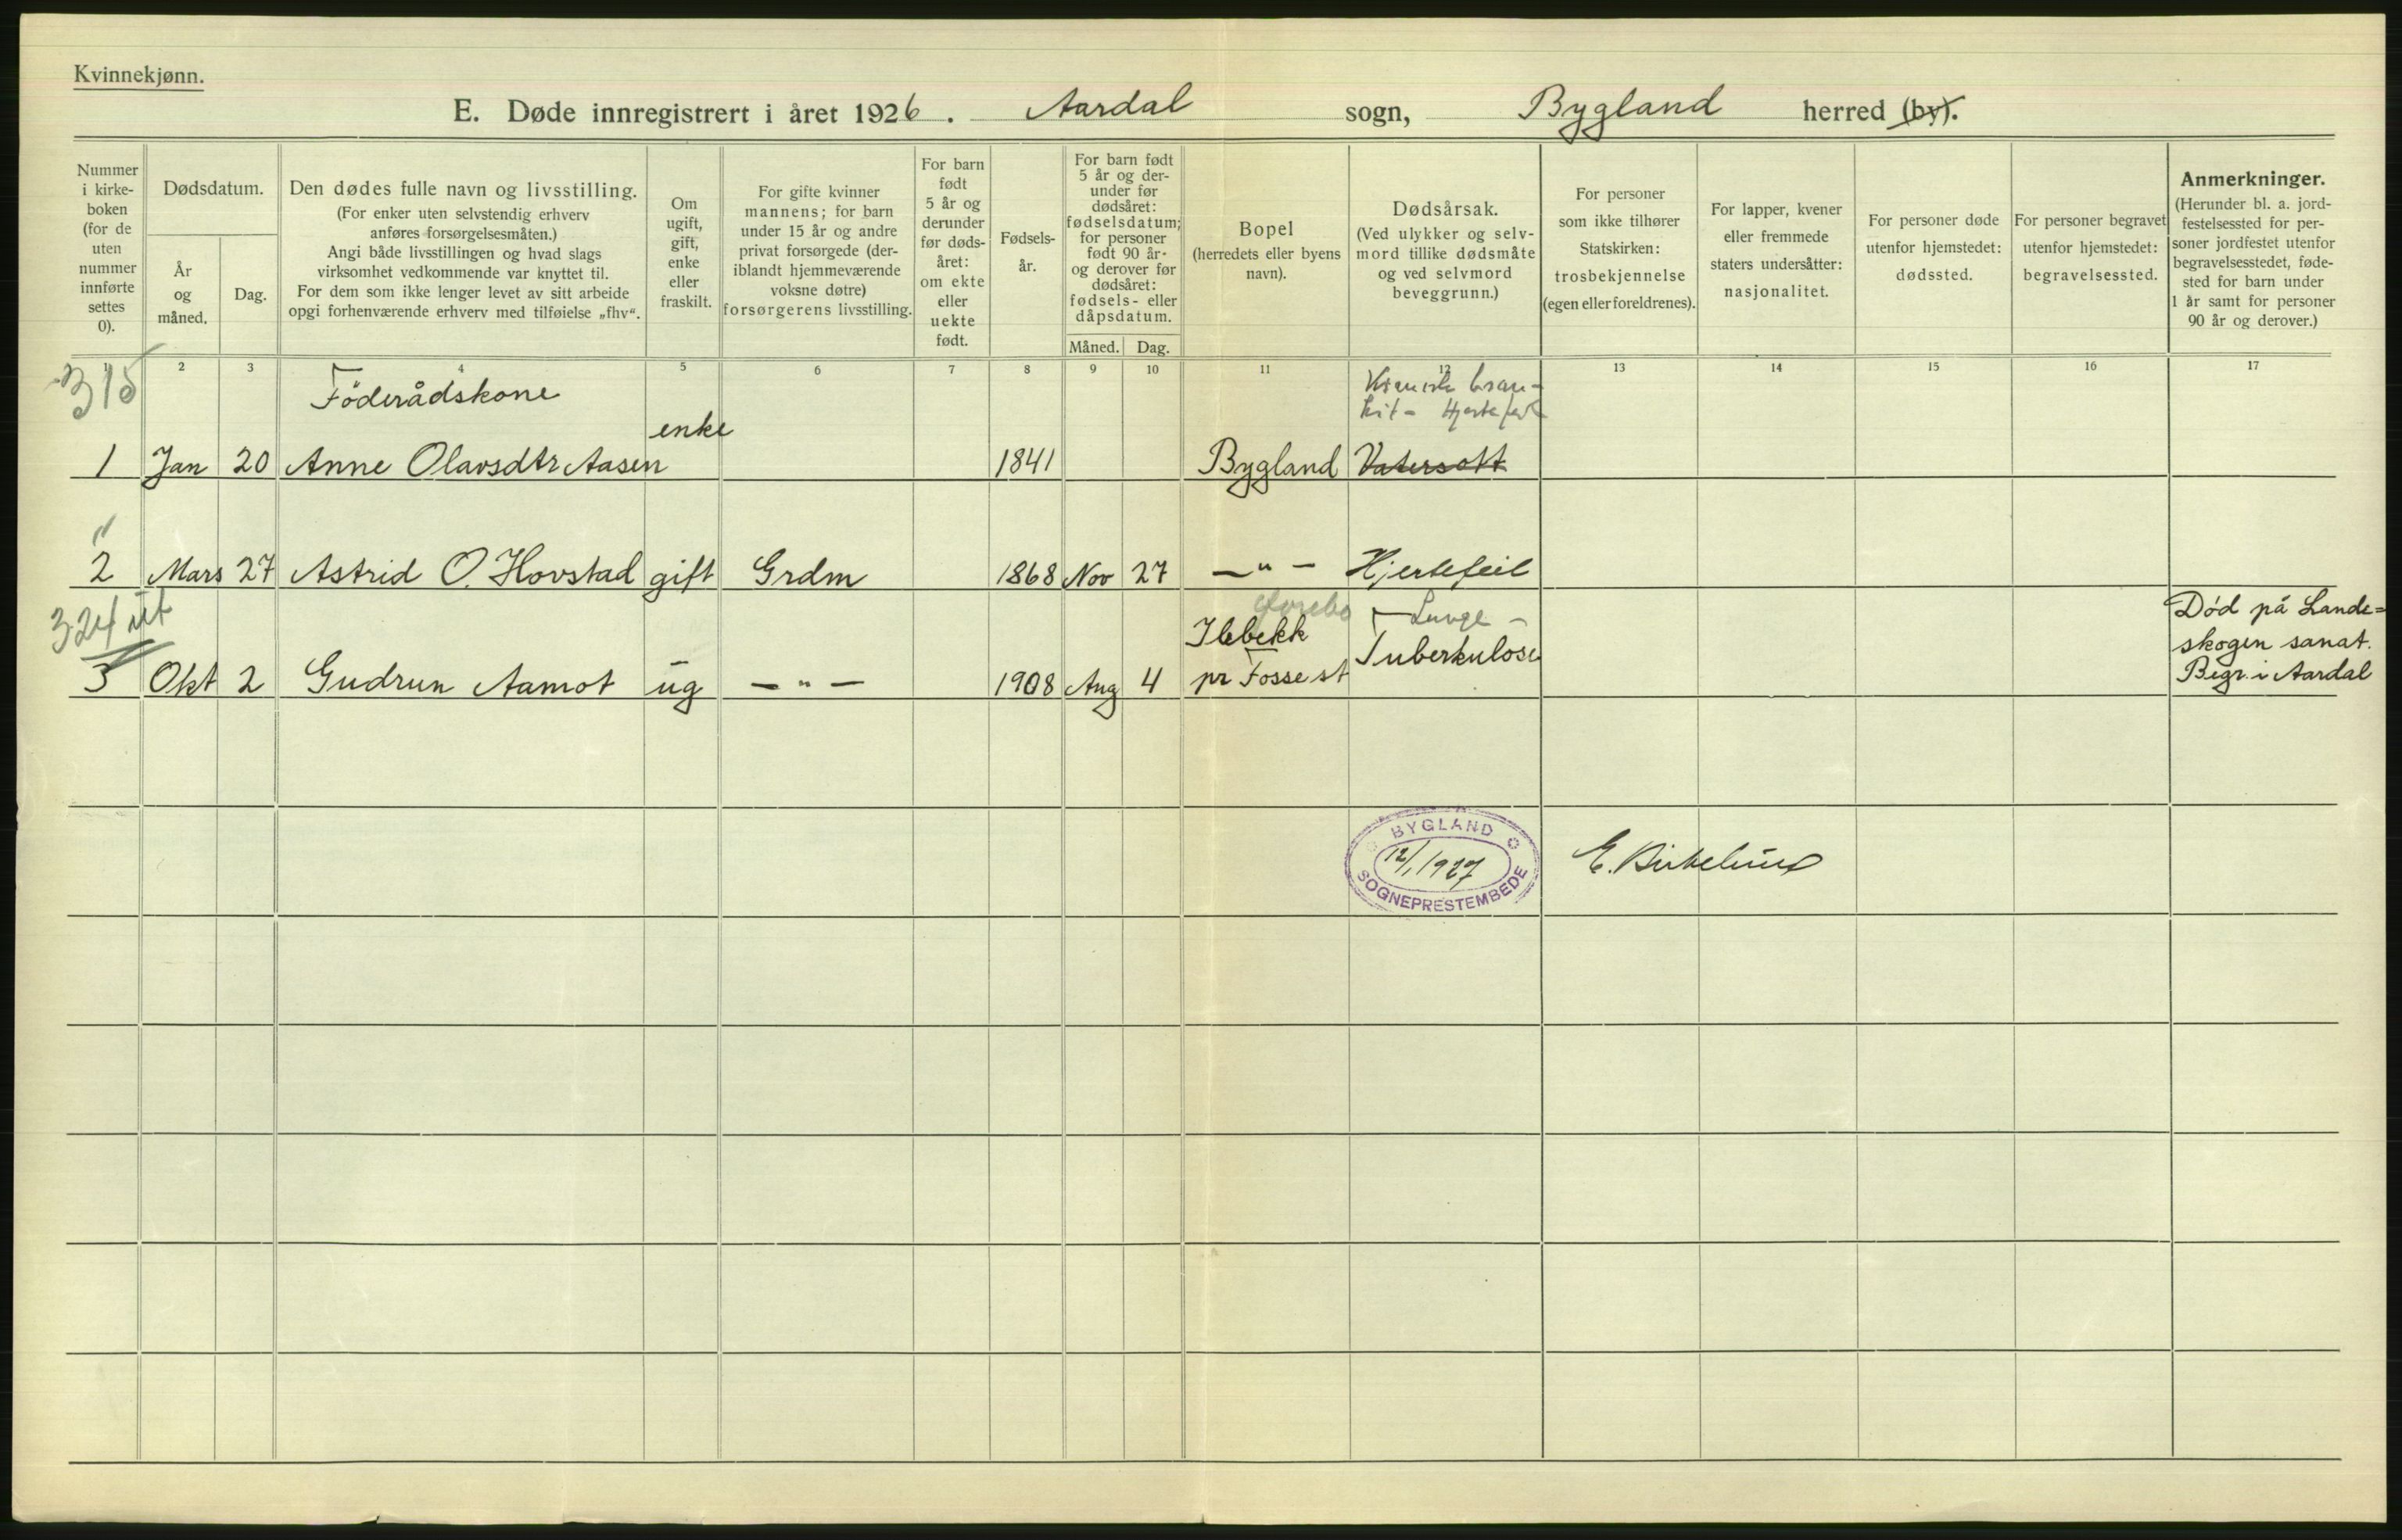 Kvinnekjønn.
E. Døde innregistrert i året 1926. Aardal sogn, Bygland herred (by).
Nummer
i kirke-
boken
(for de
uten
nummer
innførte
settes
0).
Dødsdatum.
År
og
måned.
Dag.
Den dødes fulle navn og livsstilling.
(For enker uten selvstendig erhverv
anføres forsørgelsesmåten.)
Angi både livsstillingen og hvad slags
virksomhet vedkommende var knyttet til.
For dem som ikke lenger levet av sitt arbeide
opgi forhenværende erhverv med tilføielse „fhv“.
Om
ugift,
gift,
enke
eller
fraskilt.
For gifte kvinner
mannens; for barn
under 15 år og andre
privat forsørgede (der-
iblandt hjemmeværende
voksne døtre)
forsørgerens livsstilling.
For barn
født
5 år og
derunder
før døds-
året:
om ekte
eller
uekte
født.
Fødsels-
år.
For barn født
5 år og der-
under før
dødsåret:
fødselsdatum;
for personer
født 90 år-
og derover før
dødsåret:
fødsels- eller
dåpsdatum.
Måned. Dag.
Bopel
(herredets eller byens
navn).
Dødsårsak.
(Ved ulykker og selv-
mord tillike dødsmåte
og ved selvmord
beveggrunn.)
For personer
som ikke tilhører
Statskirken:
trosbekjennelse
(egen eller foreldrenes).
For lapper, kvener
eller fremmede
staters undersåtter:
nasjonalitet.
For personer døde
utenfor hjemstedet:
dødssted.
For personer begravet
utenfor hjemstedet:
begravelsessted.
Anmerkninger.
(Herunder bl. a. jord-
festelsessted for per-
soner jordfestet utenfor
begravelsesstedet, føde-
sted for barn under
1 år samt for personer
90 år og derover.)
1 2 3 4 5 6 7 8 9 10 11 12 13 14 15 16 17
315 Föderådskone
enke
1 Jan 20 Anne Olavsdtr Aasen 1841 Bygland Vatersott
"
2 Mars 27 Astrid O. Hovstad gift Grdm 1868 Nov 27 — " — Hjertefeil
324 Lunge -
Død på Lande=
Ilebekk Tuberkulose skogen sanat.
3 Okt 2 Gudrun Aamot ug — " — 1908 Aug 4 pr Fosse st Begr. i Aardal
BYGLAND
12/1 1927
SOGNEPRESTEMBEDE
E. Birkelund